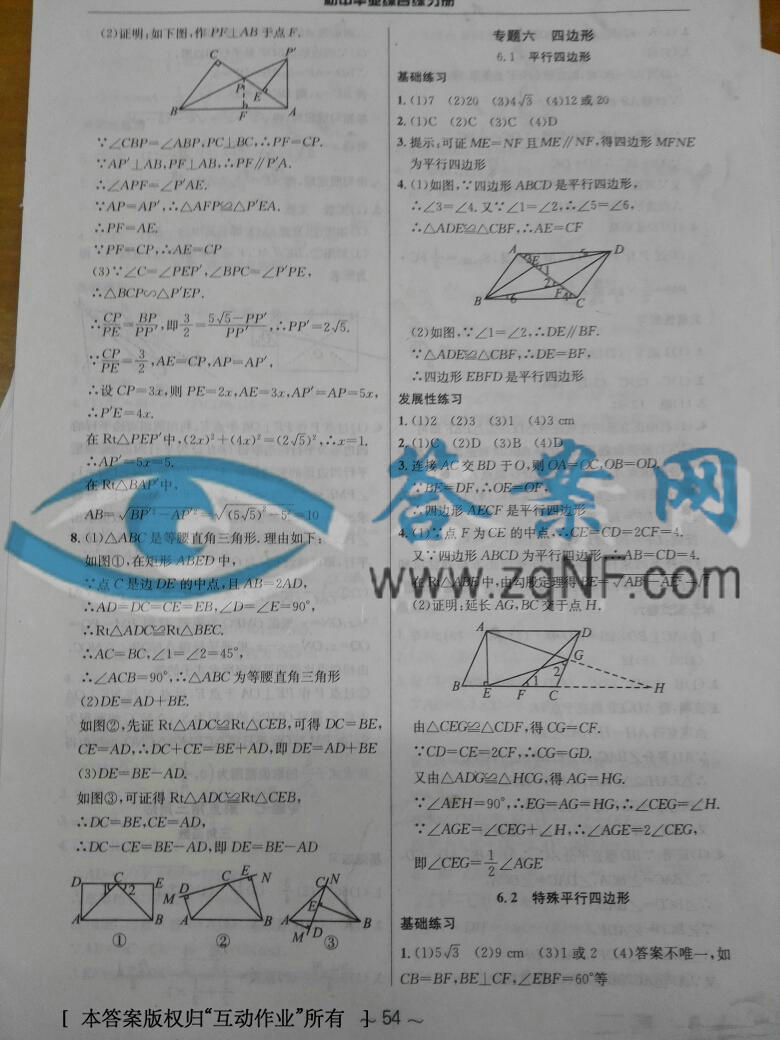 初中毕业综合练习册
(2)证明:如下图,作PF⊥AB于点F.
C P′ P E B F A
∵∠CBP=∠ABP,PC⊥BC,∴PF=CP.
∵AP′⊥AB,PF⊥AB,∴PF∥P′A.
∴∠APF=∠P′AE.
∵AP=AP′,∴△AFP≌△P′EA.
∴PF=AE.
∵PF=CP,∴AE=CP
(3)∵∠C=∠PEP′,∠BPC=∠P′PE,
∴△BCP∽△P′EP.
∴CP/PE=BP/PP′,即3/2=(5√5-PP′)/PP′,∴PP′=2√5.
∵CP/PE=3/2,AE=CP,AP=AP′,
∴设CP=3x,则PE=2x,AE=3x,AP′=AP=5x,
∴P′E=4x.
在Rt△PEP′中,(2x)²+(4x)²=(2√5)²,∴x=1.
∴AP′=5x=5.
在Rt△BAP′中,
AB=√(BP′²-AP′²)=√((5√5)²-5²)=10
8.(1)△ABC是等腰直角三角形.理由如下:
如图①,在矩形ABED中,
∵点C是边DE的中点,且AB=2AD,
∴AD=DC=CE=EB,∠D=∠E=90°,
∴Rt△ADC≌Rt△BEC.
∴AC=BC,∠1=∠2=45°,
∴∠ACB=90°,∴△ABC为等腰直角三角形
(2)DE=AD+BE.
如图②,先证Rt△ADC≌Rt△CEB,可得DC=BE,
CE=AD,∴DC+CE=BE+AD,即DE=AD+BE
(3)DE=BE-AD.
如图③,可证得Rt△ADC≌Rt△CEB,
∴DC=BE,CE=AD,
∴DC-CE=BE-AD,即DE=BE-AD
D C E 1 2 A B ①
M D C E N A B ②
C N E A B M D ③
专题六 四边形
6.1 平行四边形
基础练习
1.(1)7 (2)20 (3)4√3 (4)12或20
2.(1)C (2)C (3)C (4)D
3.提示:可证ME=NF且ME∥NF,得四边形MFNE
为平行四边形
4.(1)如图,∵四边形ABCD是平行四边形,
∴∠3=∠4.又∵∠1=∠2,∴∠5=∠6,
∴△ADE≌△CBF,∴AE=CF
A 3 E 1 5 D 2 B 6 F 4 C
(2)如图,∵∠1=∠2,∴DE∥BF.
∵△ADE≌△CBF,∴DE=BF,
∴四边形EBFD是平行四边形
发展性练习
1.(1)2 (2)3 (3)1 (4)3 cm
2.(1)C (2)D (3)B (4)D
3.连接AC交BD于O,则OA=OC,OB=OD.
∵BE=DF,∴OE=OF,
∴四边形AECF是平行四边形
4.(1)∵点F为CE的中点,∴CE=CD=2CF=4.
又∵四边形ABCD为平行四边形,∴AB=CD=4.
在Rt△ABE中,由勾股定理得BE=√(AB²-AE²)=√7
(2)证明:延长AG,BC交于点H.
A D G 2 1 B E F C H
由△CEG≌△CDF,得CG=CF.
∵CD=CE=2CF,∴CG=GD.
又由△ADG≌△HCG,得AG=HG.
∵∠AEH=90°,∴EG=AG=HG,∴∠CEG=∠H.
∵∠AGE=∠CEG+∠H,∴∠AGE=2∠CEG,
即∠CEG=1/2∠AGE
6.2 特殊平行四边形
基础练习
1.(1)5√3 (2)9 cm (3)1或2 (4)答案不唯一,如
CB=BF,BE⊥CF,∠EBF=60°等
答案网
www.zqNF.com
[ 本答案版权归“互动作业”所有 ]
~ 54 ~